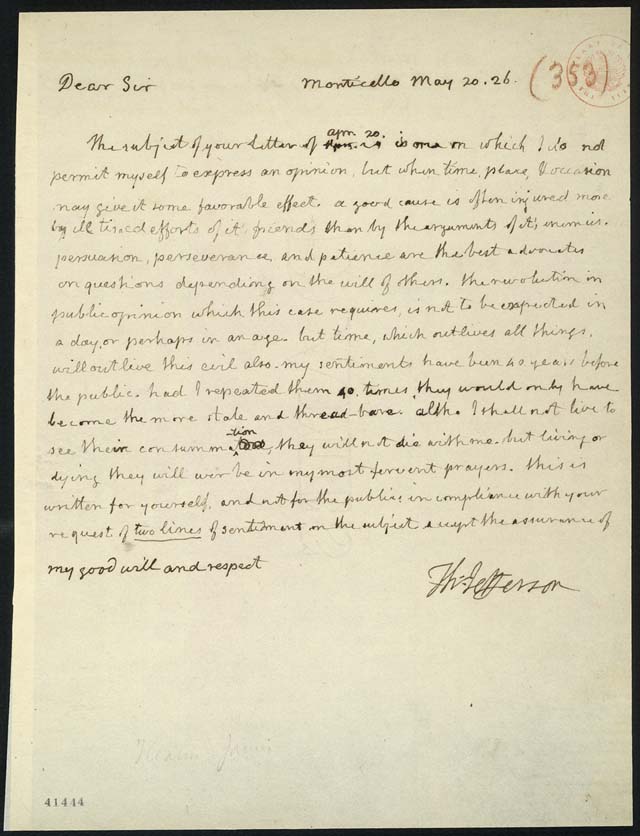 Dear Sir Monticello May 20. 26. (353)
apr. 20.
The subject of your letter of is one on which I do not
permit myself to express an opinion, but when time, place, & occasion
may give it some favorable effect. a good cause is often injured more
by ill timed efforts of it's friends than by the arguments of it's enemies.
persuasion, perseverance, and patience are the best advocates
on questions depending on the will of others. the revolution in
public opinion which this case requires, is not to be expected in
a day, or perhaps in an age. but time, which outlives all things,
will outlive this evil also. my sentiments have been 40 years before
the public. had I repeated them 40. times, they would only have
become the more stale and thread-bare. altho I shall not live to
tion
see their consumma, they will not die with me. but living or
dying they will ever be in my most fervent prayers. this is
written for yourself, and not for the public, in compliance with your
request of two lines of sentiment on the subject. accept the assurance of
my good will and respect
Th: Jefferson
41444